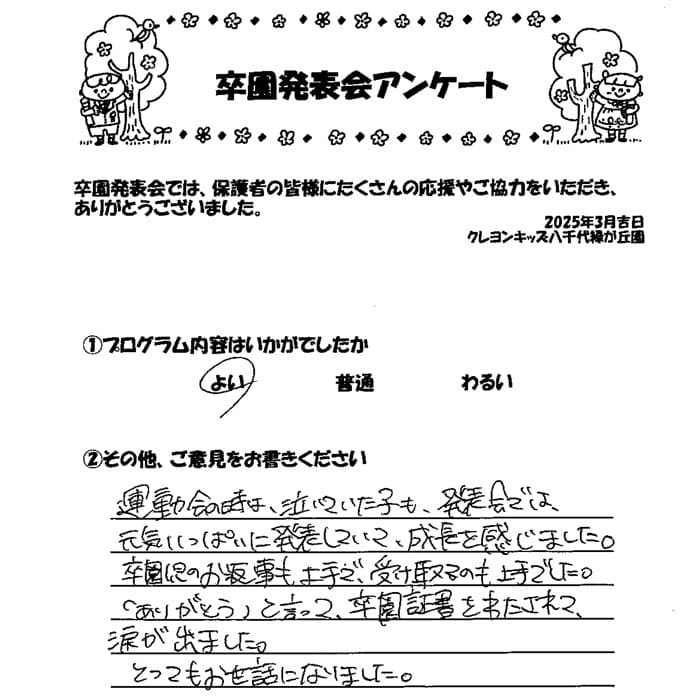 卒園発表会アンケート
卒園発表会では、保護者の皆様にたくさんの応援やご協力をいただき、
ありがとうございました。
2025年3月吉日
クレヨンキッズ八千代緑が丘園
①プログラム内容はいかがでしたか
よい 普通 わるい
②その他、ご意見をお書きください
運動会の時は、泣いていた子も、発表会では、
元気いっぱいに発表していて、成長を感じました。
卒園児のお返事も上手で、受け取るのも上手でした。
「ありがとう」と言って、卒園証書をわたされて、
涙が出ました。
とってもお世話になりました。